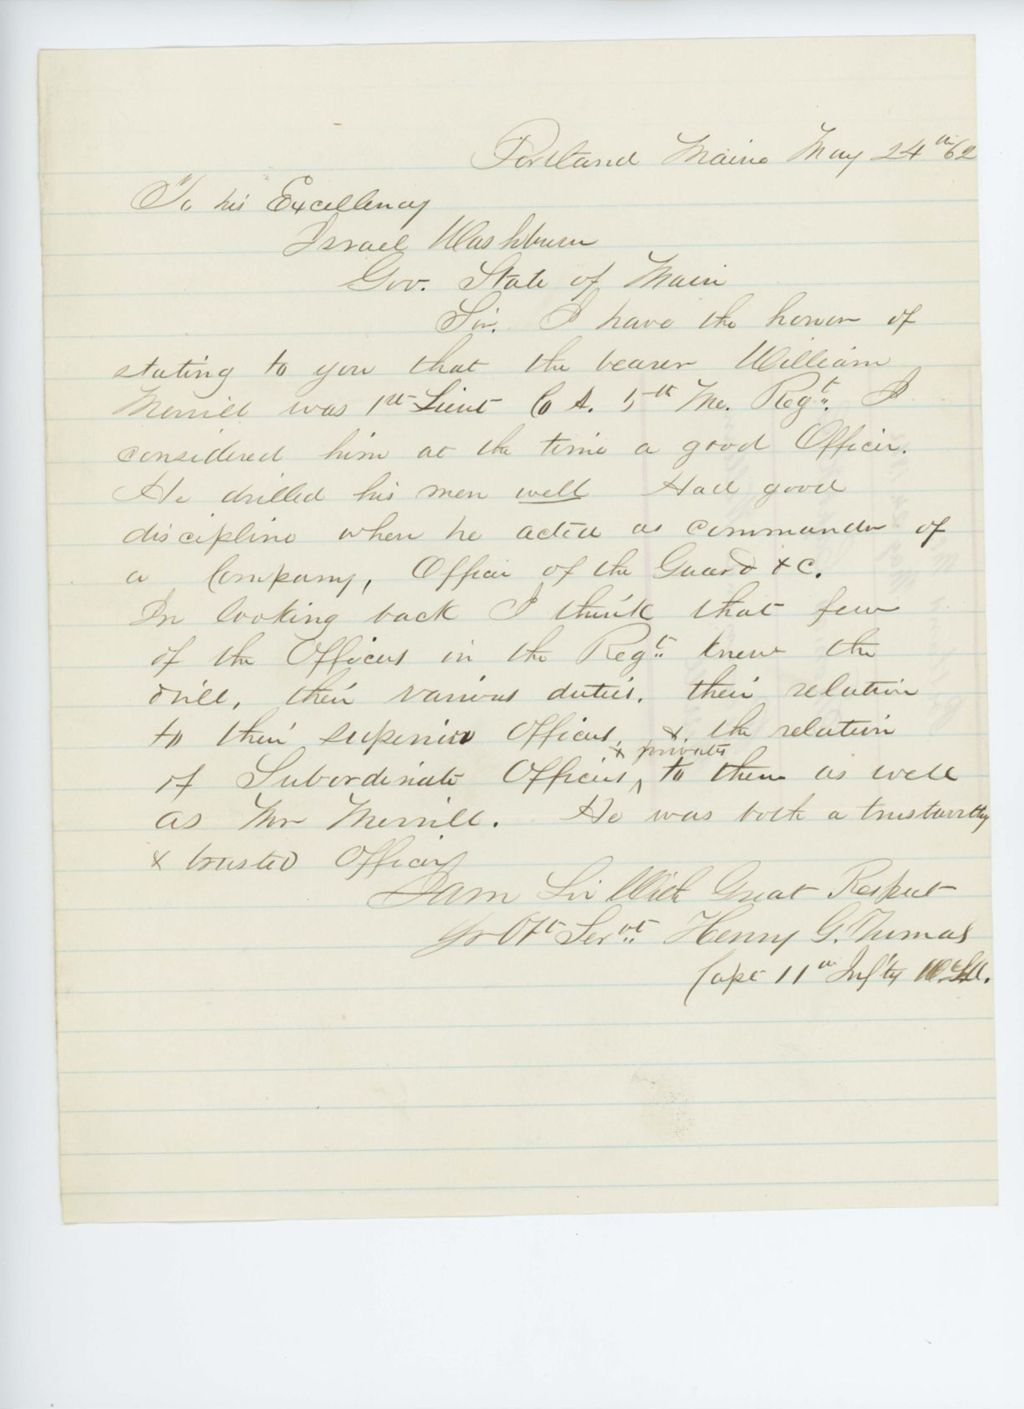 Portland Maine May 24th 62
To his Excellency
Israel Washburn
Gov. State of Main
Sir. I have the honor of
stating to you that the bearer William
Merrill was 1st Lieut Co A. 5th Me. Regt. I
considered him at the time a good Officer.
He drilled his men well Had good
discipline when he acted as commander of
a Company, Officer of the Guard &c.
In looking back I think that few
of the Officers in the Regt. knew the
drill, their various duties, their relation
to their superior Officers, & the relation
& privates
of Subordinate Officers, to them as well
as Mr Merrill. He was both a trustworthy
& trusted Officer
I am Sir With Great Respect
Yr Obt Servt. Henry G. Thomas
Capt 11th Inf'ty U.S.A.